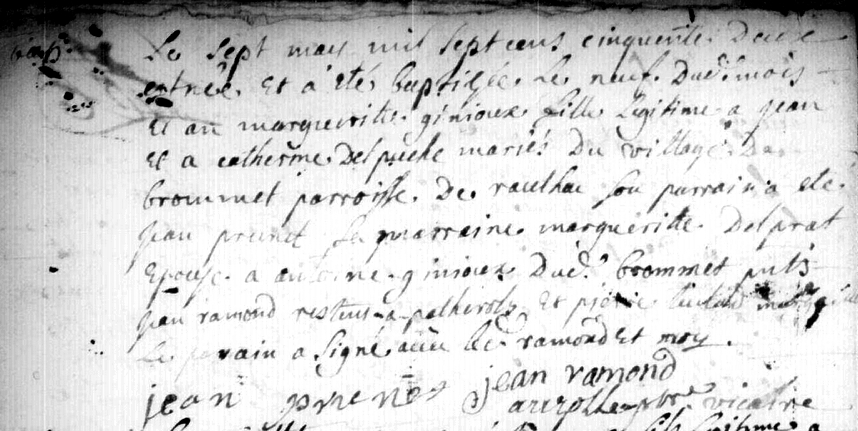 Le sept may mil sept cens cinquente Deux
est née et a été baptisée le neuf Dud. mois
et an margueritte ginioux fille legitime a jean
et a catherine Delpuche mariés Du village De
brommet parroisse De raulhac son parrain a été
jean prunet sa marraine marguerite Delprat
Epouse a antoine ginioux Dud. brommet pnts
jean ramond restant a palherols Et pierre
Le parrain a signé avec led. ramond Et moy.
jean prunet jean ramond
pbre vicaire
legitime a